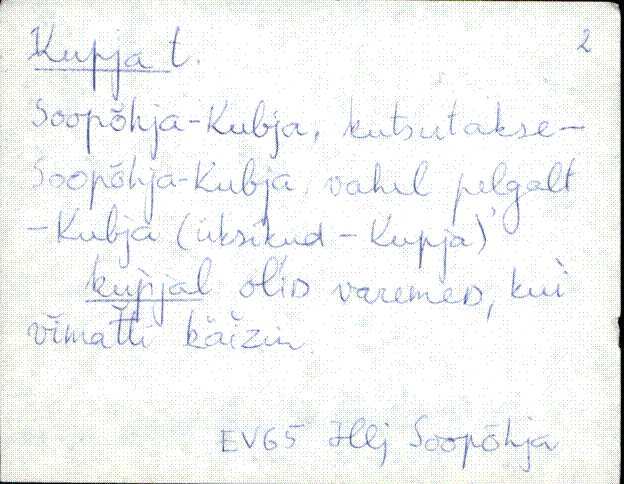 Kupja t. 2
Soopõhja-Kubja, kutsutakse-
Soopõhja-Kubja, vahel pelgalt
-Kubja (üksikud - Kupja)
kupjal olid varemeD, kui
käizin.
EV65 Jllj Soopõhja